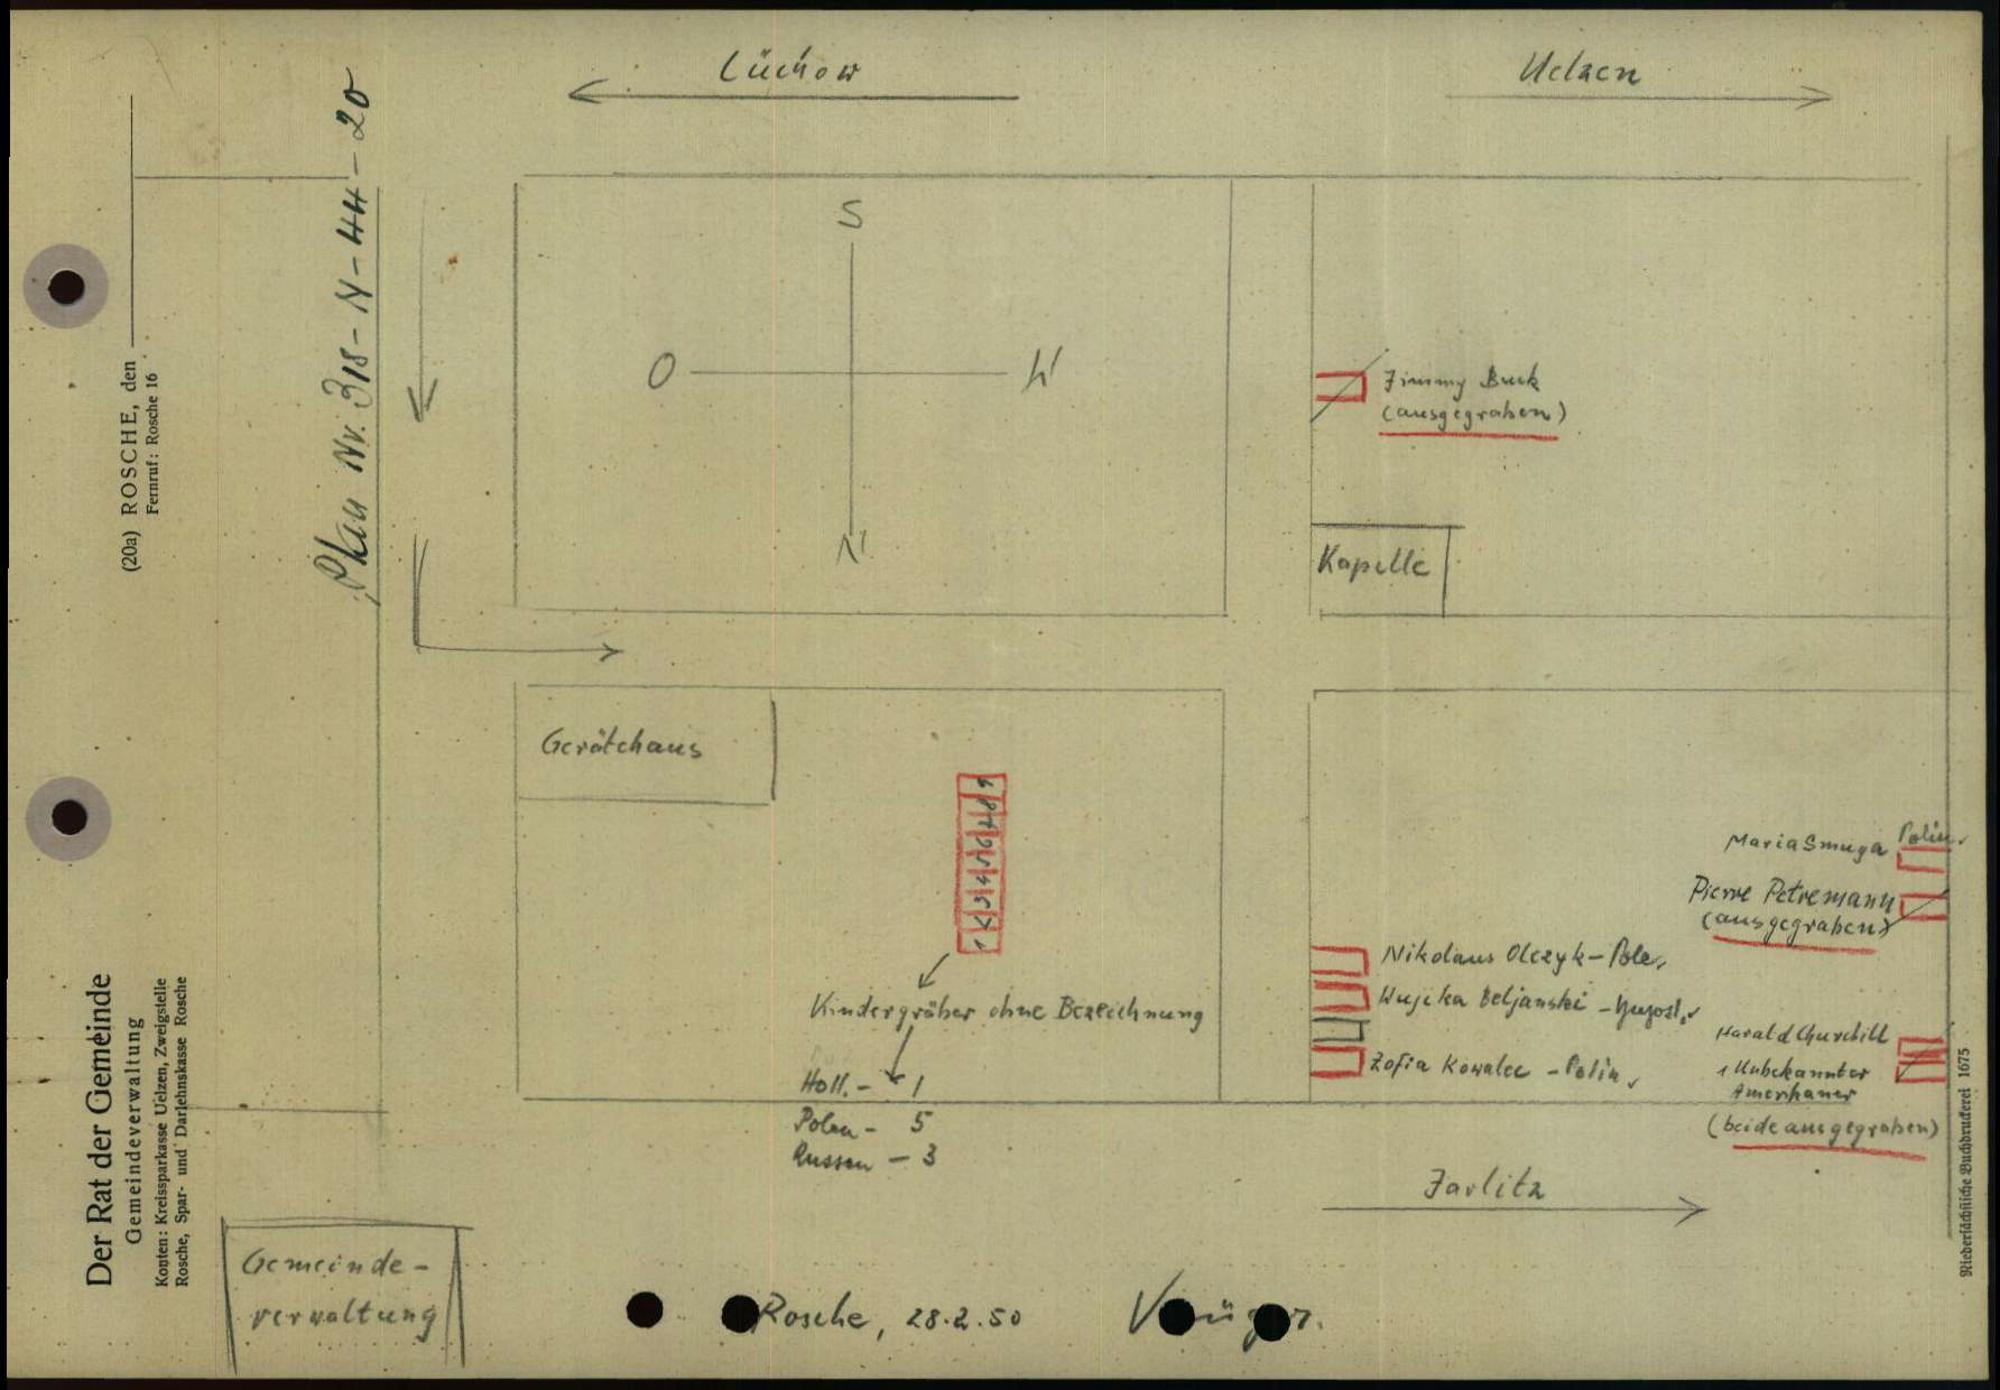 Lüchow
Uelzen
Plan Nr. 318-N-44-20
(20a) ROSCHE, den
Fernruf: Rosche 16
Der Rat der Gemeinde
Gemeindeverwaltung
Konten: Kreissparkasse Uelzen, Zweigstelle
Rosche, Spar- und Darlehnskasse Rosche
S
O
W
N
Jimmy Buck
(ausgegraben)
Kapelle
Gerätehaus
9 8 7 6 5 4 3 2 1
Kindergräber ohne Bezeichnung
Holl. - 1
Polen - 5
Russen - 3
Maria Smuga Polin
Pierre Petremann
(ausgegraben)
Nikolaus Olczyk - Pole
Wujika Beljanski - Jugosl.
Zofia Kowalec - Polin
Harald Churchill
1 Unbekannter
Amerikaner
(beide ausgegraben)
Jarlitz
Gemeinde-
verwaltung
Rosche, 28.2.50
Niedersächsische Buchdruckerei 1675